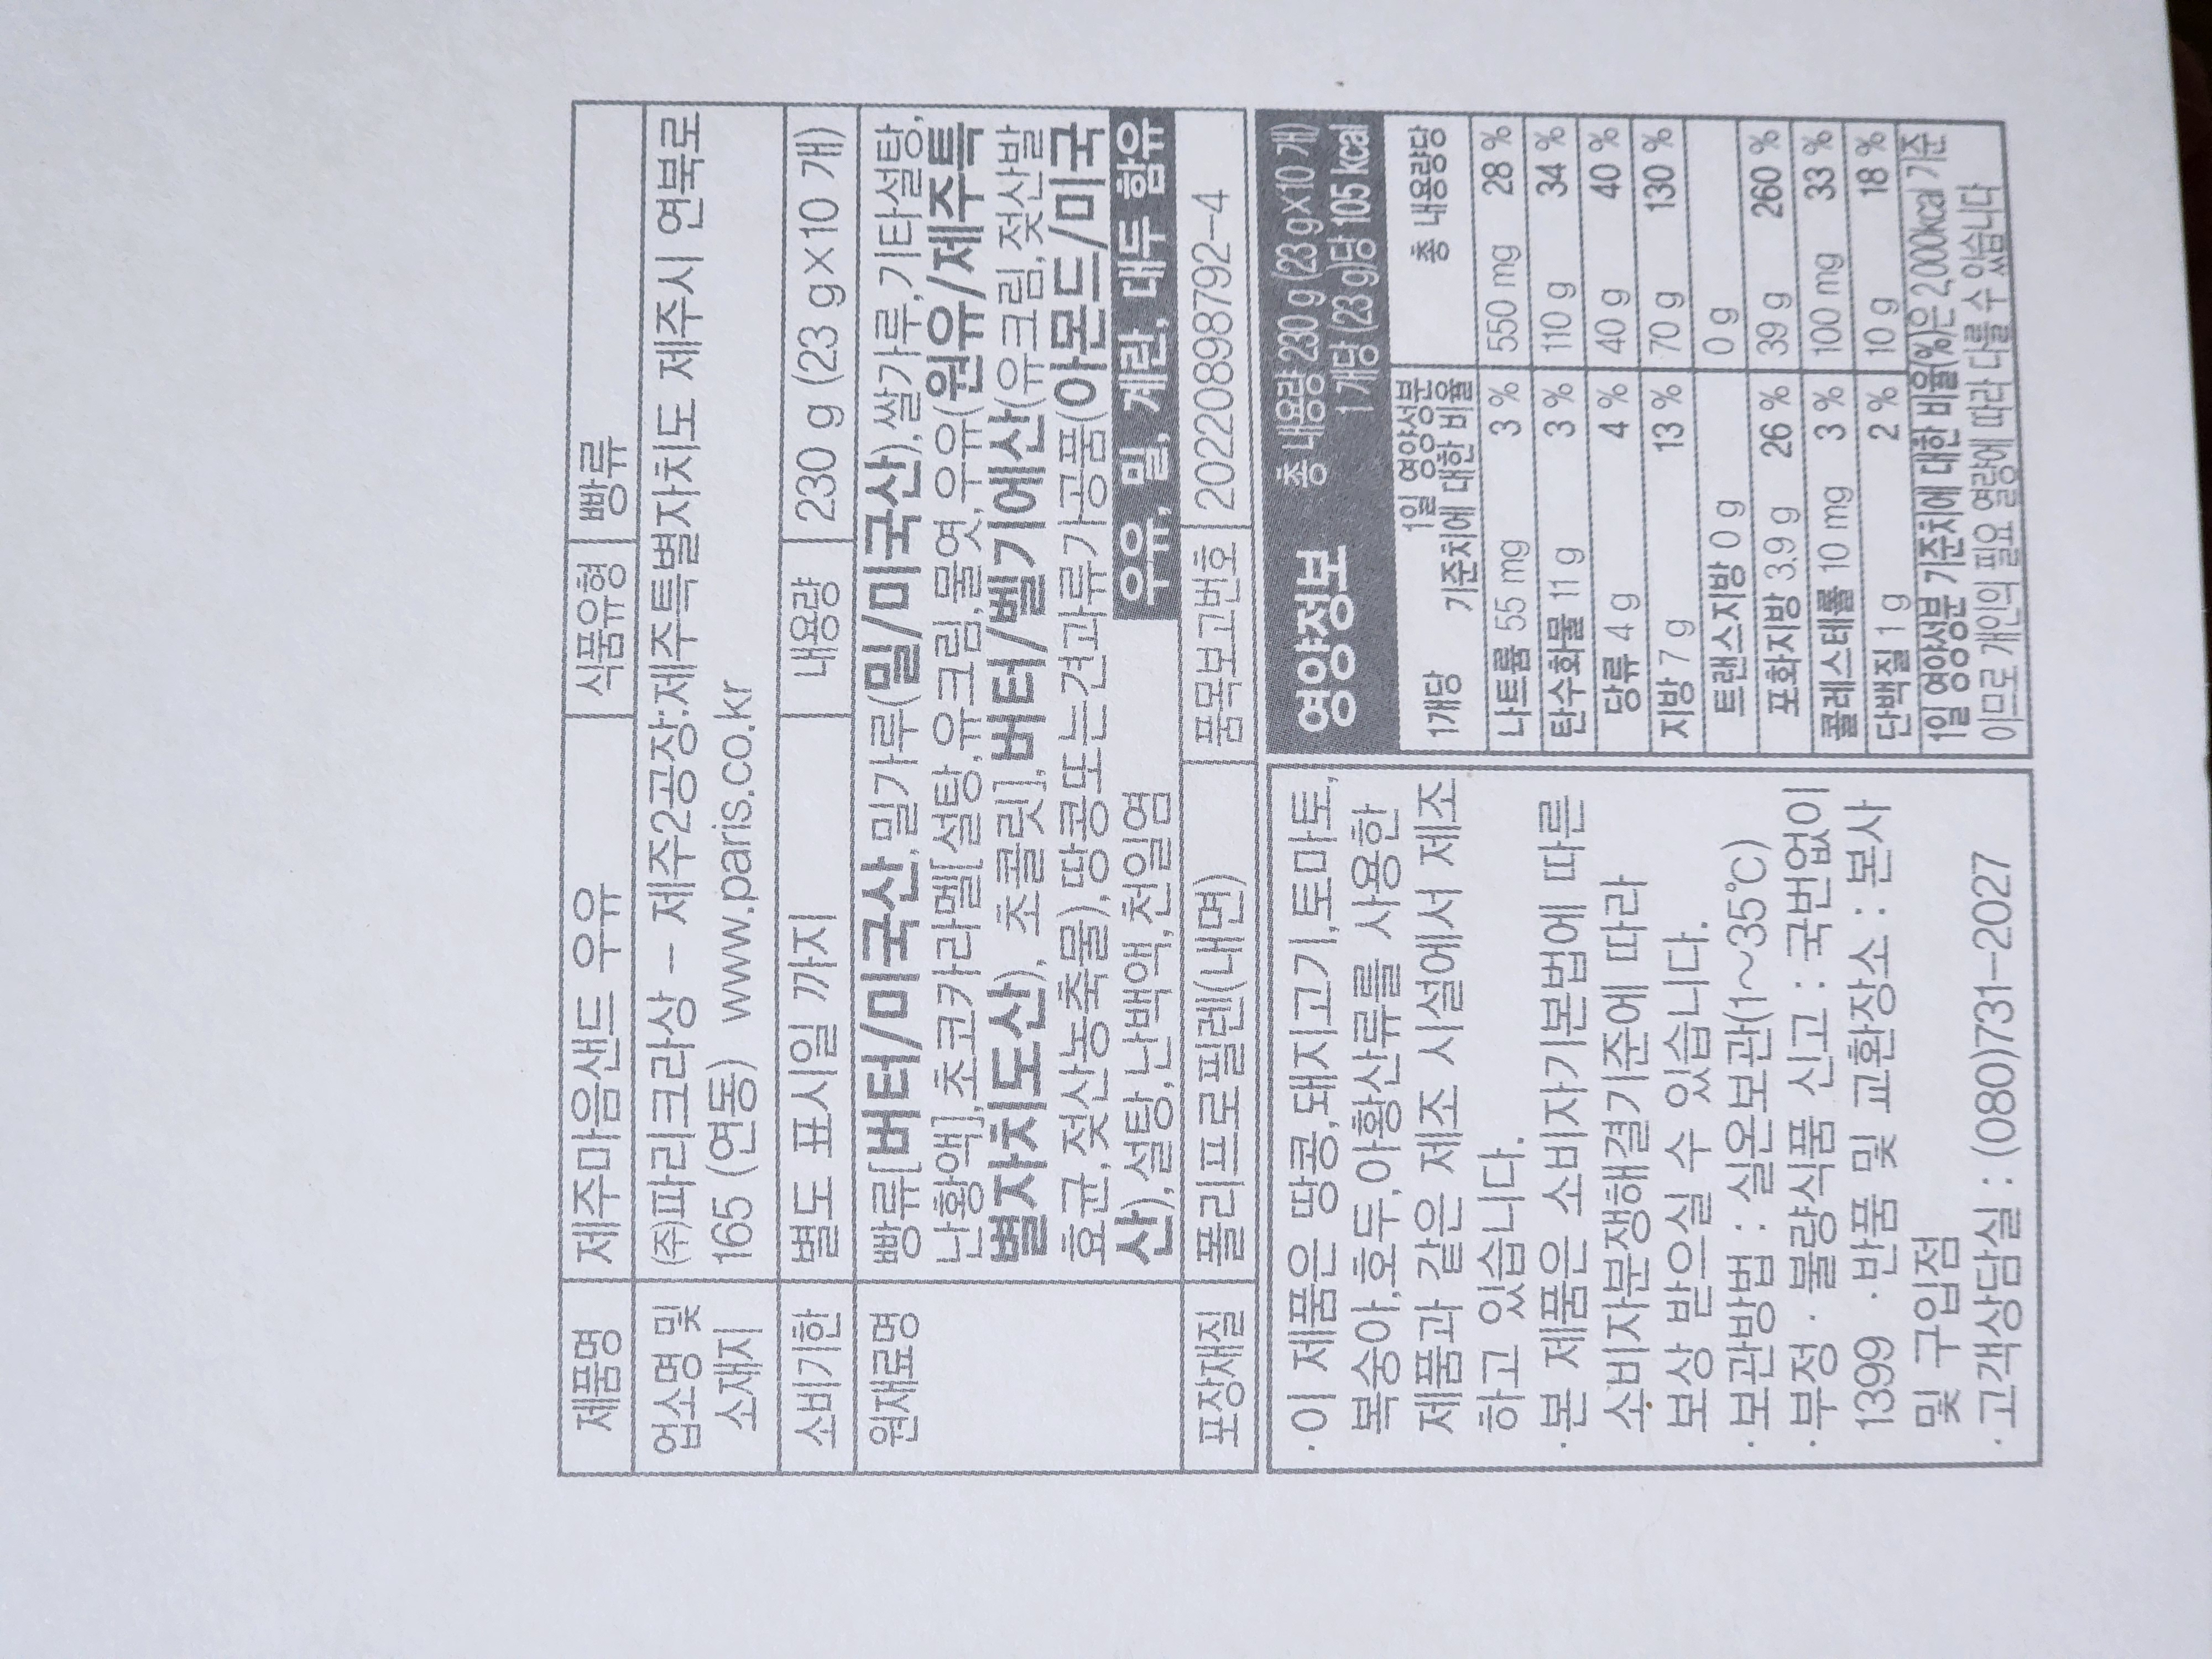 제품명 제주마음샌드 우유 식품유형 빵류
업소명 및 소재지 (주)파리크라상 – 제주2공장:제주특별자치도 제주시 연북로
165 (연동) www.paris.co.kr
소비기한 별도 표시일 까지 내용량 230 g (23 g×10 개)
원재료명 빵류[버터/미국산,밀가루(밀/미국산),쌀가루,기타설탕,
난황액],초코카라멜[설탕,유크림,물엿,우유(원유/제주특
별자치도산), 초콜릿],버터/벨기에산(유크림,젖산발
효균,젖산농축물),땅콩또는견과류가공품(아몬드/미국
산),설탕,난백액,천일염 우유, 밀, 계란, 대두 함유
포장재질 폴리프로필렌(내면) 품목보고번호 20220898792-4
·이 제품은 땅콩,돼지고기,토마토,
복숭아,호두,아황산류를 사용한
제품과 같은 제조 시설에서 제조
하고 있습니다.
·본 제품은 소비자기본법에 따른
소비자분쟁해결기준에 따라
보상 받으실 수 있습니다.
·보관방법 : 실온보관(1~35℃)
·부정·불량식품 신고 : 국번없이
1399 ·반품 및 교환장소 : 본사
및 구입점
·고객상담실 : (080)731-2027
영양정보 총 내용량 230 g (23 g×10 개)
1개당 (23 g)당 105 kcal
1개당 1일 영양성분 기준치에 대한 비율 총 내용량당
나트륨 55 mg 3 % 550 mg 28 %
탄수화물 11 g 3 % 110 g 34 %
당류 4 g 4 % 40 g 40 %
지방 7 g 13 % 70 g 130 %
트랜스지방 0 g 0 g
포화지방 3.9 g 26 % 39 g 260 %
콜레스테롤 10 mg 3 % 100 mg 33 %
단백질 1 g 2 % 10 g 18 %
1일 영양성분 기준치에 대한 비율(%)은 2,000kcal 기준
이므로 개인의 필요 열량에 따라 다를 수 있습니다